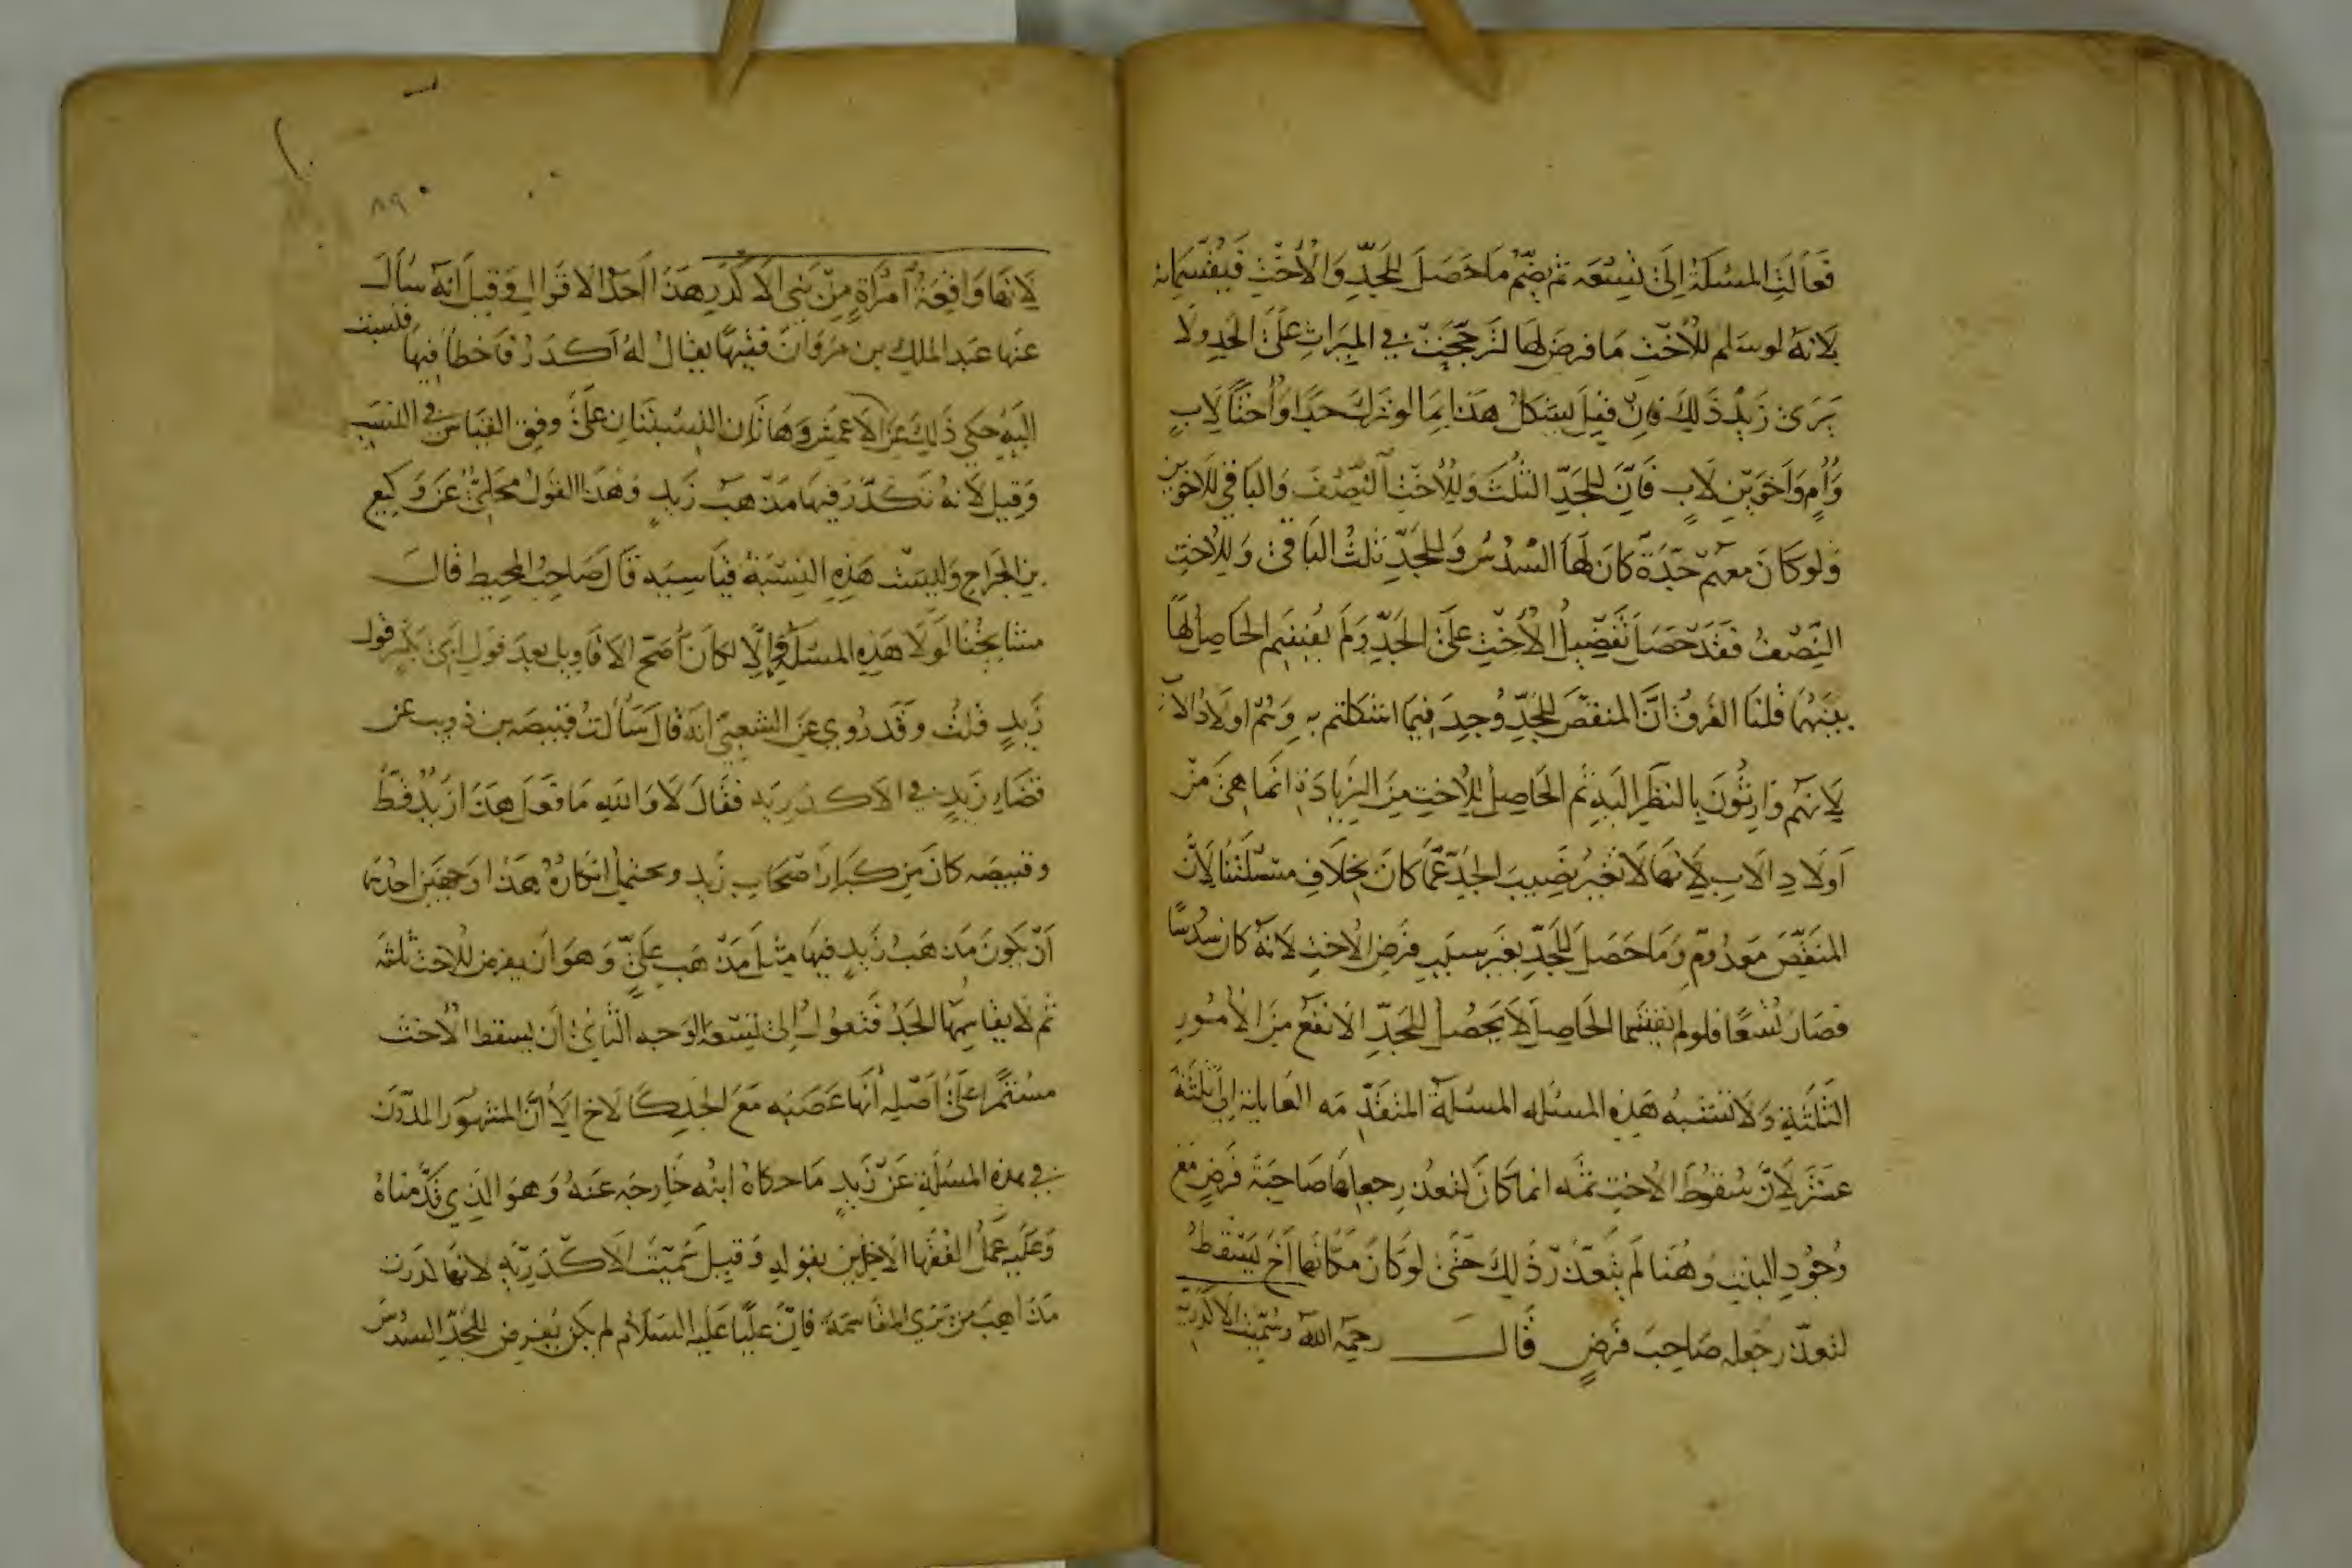 فَعَالَتِ المسْئلَةُ اِلَى تسْعَه ثم يضّمُ مَا حَصَلَ للجَدِّ وَالْأختِ فَيقْتسمَانه
لانهُ لو سَلم للأختِ مَا فرضَ لهَا لترجّحَتْ في الميَراثِ عَلَى الجَدِ ولا
يَرَى زَيْدٌ ذَلِكَ فإنْ قيلَ يشكلُ هَذا بمَا لو ترَكَ جَدًا وَأختًا لابٍ
وَأُمٍ وَاَخَوَيْنِ لابٍ فَاِنَّ للجَدِّ الثلُثَ وَلِلأختِ النّصْفَ وَالبَاقي للاخوَين
وَلو كَانَ معهُم جَدّةٌ كانَ لَهَا السُدُسُ وَللجَدِّ ثلثُ البَاقي وَللأختِ
النّصْفُ فقَدْ حَصَلَ تفضِيلُ الأختِ عَلَى الجَدِّ وَلَم يقتسِم الحَاصِلُ لهَا
بينَهُمَا قلنَا الفَرقُ اَنَّ المنقّصَ للجَدِّ وُجِدَ فيمَا استشكلتم بهِ وَهُم اولادُ الاب
لانهُم وَارِثُونَ بالنظَرِ اليَهِ ثم الحَاصِلُ للأختِ مِنَ الزيَادَةِ انما هيَ مِنْ
اَولَادِ الاَبِ لاَنهَا لَا تغيّر نصِيبَ الجَدِّ عَمّا كانَ بخلَافِ مسْئلَتنَا لاَنّ
المنقّصَ مَعدُومٌ وَمَا حَصَلَ للجَدِّ بغَير سبَبِ فرَض الأختِ لانهُ كانَ سُدُسًا
فصَارَ تُسْعًا فلو لم يقتسمَا الحَاصِلَ لاَ يحصُلُ للجَدِّ الانفعُ مِنَ الأمُورِ
الثلثةِ وَلاَ تشتبهُ هَذِهِ المسْئله المسْئلةَ المتقَدّمَه العَاليةِ اِلى ثلثَةَ
عشَرَ لاَنّ سُقوُطَ الأختِ ثمّه انما كَانَ لتعذرِ جعلِهَا صَاحبَةَ فَرضٍ مَع
وُجُودِ البنتِ وَهُنَا لم يتعَذّرْ ذَلِكَ حَتَّى لوْ كَانَ مَكَانَهَا أخَ يَسْقطُ
لتعذّر جَعله صَاحِبَ فَرضٍ قَالَ رحمَهُ اللهُ وَسُمّيتِ الاكدَريّة
لاَنهَا وَاقِعَةُ امْرَاةٍ مِنْ بَنِي الاَكْدَرِ هَذَا اَحَدُ الاقوَالِ وَقيلَ اَنهُ سَأَلَ
عَنهَا عَبدُ الملكِ بن مَروَانَ فقيهًا يقَالُ لهُ اَكدَرُ فاخطأ فيهَا فلسبت
اليَهِ حكي ذَلِكَ عَنِ الاعمَشِ وَهَاتَانِ النسْبَتَانِ عَلَى وفقِ القيَاسِ في النسَبِ
وَقيلَ لانهُ تكَدّرَ فيهَا مَذْهَبُ زَيدٍ وَهَذَا القولُ مَحكيٌّ عَنْ وَكيعِ
بن الجَراحِ وَليسَتْ هَذِهِ النسْبَةُ قيَاسِيَه قَالَ صَاحِبُ المحِيطِ قالَ
مشايخُنَا لَوْلاَ هَذِهِ المسْئلَة وَإلاّ لكَانَ اَصَح الاقَاوِيل بعدَ قولِ اَبي بكرٍ قول
زَيدٍ قلتُ وَقَدْ رُوِيَ عَنِ الشعبيّ انهُ قَالَ سَألتُ قبيصَه بن ذويب عن
قضَاءِ زَيدٍ في الاَكدَريَه فقَالَ لاَ وَاللهِ مَا فعَلَ هَذَا زَيْدٌ قَطُّ
وقبيصَه كانَ مِن كبَارِ اَصْحَابِ زَيدٍ ويحتملُ انكارُهُ هَذَا وَجهَين احدُهمَا
اَنْ يكونَ مَذهَبُ زَيدٍ فيهَا مثلَ مَذهَبِ عَليٍّ وَهوَ ان يفرضَ للاختِ ثلثه
ثم لا يقَاسِمهَا الجَدُ فَتعولُ اِلى تسْعه الوَجه الثّاني اَن يسقط الأختَ
مسْتمرًا عَلَى اَصْلِهِ اَنهَا عَصَبَه مَعَ الجَدِ كَالاَخِ الاَ اَنَّ المشهوُر المدَوَّن
في هذه المسْئلَةِ عَنْ زَيدٍ مَا حكاهُ ابنُه خَارجَه عَنهُ وَهوَ الذِي قدَّمنَاهُ
وَعَليهِ عَمَلُ الفقَهَا الاخِذِين بقولِهِ وَقيلَ سُمّيتِ الاكْدَريّهِ لانهَا كدَرت
مَذَاهِبَ مَن يرَى المقَاسَمَة فإنّ عَليًّا عَلَيه السَلَامُ لم يكُن يفرض للجَدِّ السدُسَ